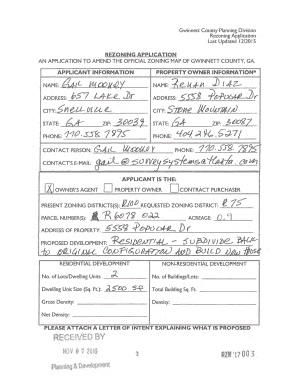 Gwinnett County Planning Division
Rezoning Application
Last Updated 12/2015
REZONING APPLICATION
AN APPLICATION TO AMEND THE OFFICIAL ZONING MAP OF GWINNETT COUNTY, GA.
APPLICANT INFORMATION PROPERTY OWNER INFORMATION*
NAME: GAIL MOONEY NAME: REHAN DIAZ
ADDRESS: 657 LAKE Dr ADDRESS: 5558 POPULAR Dr
CITY: SNELLVILLE CITY: STONE MOUNTAIN
STATE: GA ZIP: 30039 STATE: GA ZIP: 30087
PHONE: 770.338.7895 PHONE: 404 246.5271
CONTACT PERSON: GAIL MOONEY PHONE: 770.338 7895
CONTACT'S E-MAIL: gail@surveysystemsatlanta.com
APPLICANT IS THE:
X OWNER'S AGENT PROPERTY OWNER CONTRACT PURCHASER
PRESENT ZONING DISTRICT(S): R100 REQUESTED ZONING DISTRICT: R75
PARCEL NUMBER(S): R6078 022 ACREAGE: 0.9
ADDRESS OF PROPERTY: 5558 POPULAR Dr
PROPOSED DEVELOPMENT: RESIDENTIAL - SUBDIVIDE BACK
TO ORIGINAL CONFIGURATION AND BUILD NEW HOUSE
RESIDENTIAL DEVELOPMENT NON-RESIDENTIAL DEVELOPMENT
No. of Lots/Dwelling Units 2 No. of Buildings/Lots:
Dwelling Unit Size (Sq. Ft.): 2500 SQ Total Building Sq. Ft.
Gross Density: Density:
Net Density:
PLEASE ATTACH A LETTER OF INTENT EXPLAINING WHAT IS PROPOSED
RECEIVED BY
NOV 07 2016 3 RZR '17 003
Planning & Development